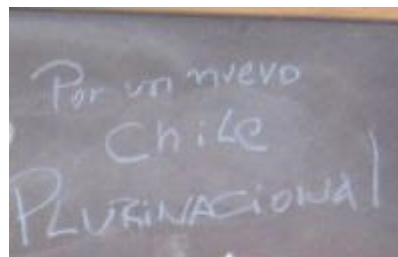 Por un nuevo
Chile
PLURINACIONAl